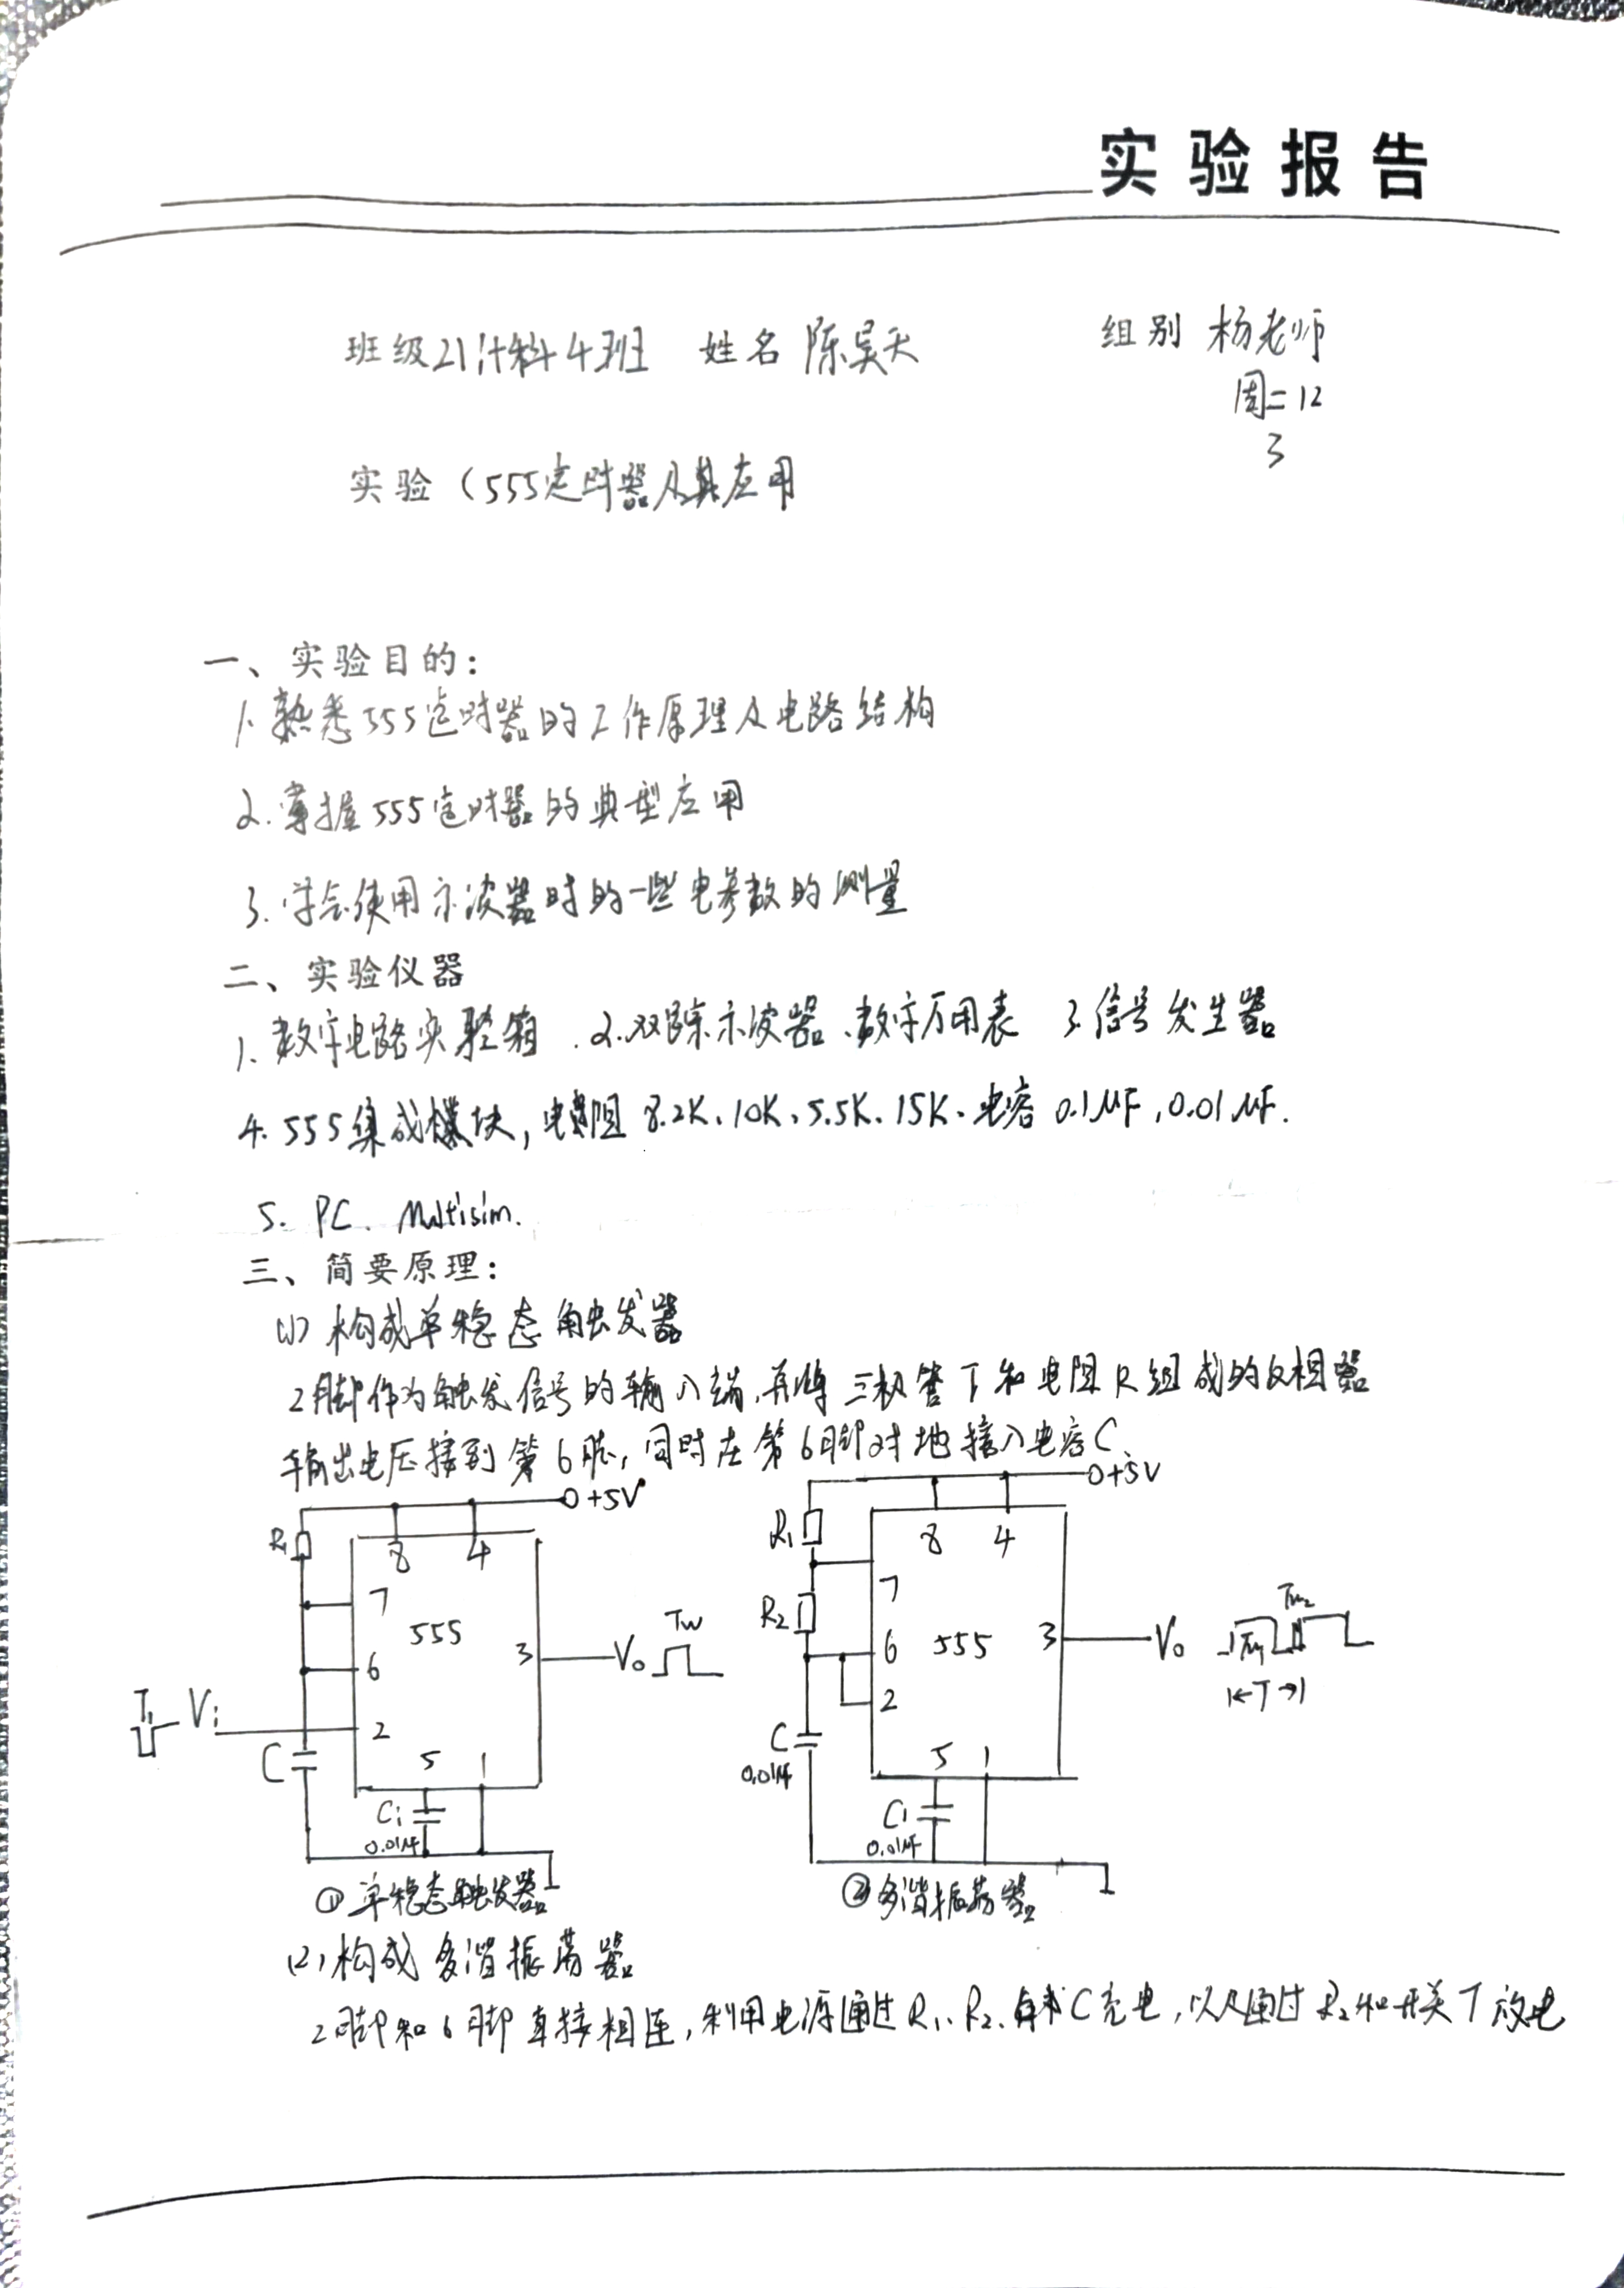 实验报告
班级 21计科4班 姓名 陈昊天 组别 杨老师
周二 12
3
实验(555定时器及其应用
一、实验目的:
1. 熟悉555定时器的工作原理及电路结构
2. 掌握555定时器的典型应用
3. 学会使用示波器时的一些电参数的测量
二、实验仪器
1. 数字电路实验箱. 2. 双踪示波器、数字万用表 3. 信号发生器
4. 555集成模块, 电阻 8.2K、10K、5.5K、15K、电容 0.1μF, 0.01μF.
5. PC. Multisim.
三、简要原理:
(1) 构成单稳态触发器
2脚作为触发信号的输入端, 并将三极管T和电阻R组成的反相器
输出电压接到第6脚, 同时在第6脚对地接入电容C、
+5V
R
8 4
7
555
6
3
Vo
Tw
Ti
Vi
2
C
5 1
Ci
0.01μF
①单稳态触发器
+5V
R1
8 4
7
R2
6
555
3
Vo
Tw1
Tw2
T
2
C
0.01μF
5 1
C1
0.01μF
②多谐振荡器
(2) 构成多谐振荡器
2脚和6脚直接相连, 利用电源通过R1、R2、向C充电, 以及通过R2和开关T放电